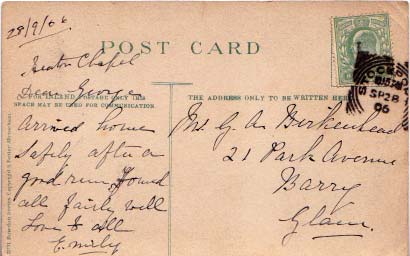 28/9/06
POST CARD
Heaton Chapel
Dear George
FOR INLAND POSTAGE ONLY THIS
SPACE MAY BE USED FOR COMMUNICATION
THE ADDRESS ONLY TO BE WRITTEN HERE
arrived home
safely after a
good run, found
all fairly well
Love to all
Emily
Mr. G. A. Birkenhead
21 Park Avenue
Barry
Glam.
STOCKPORT
SP 28
06